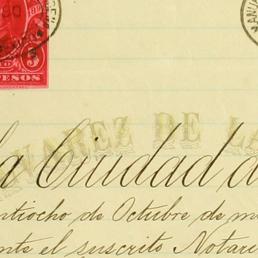 5
PESOS
VAREZ DE LA
la Ciudad d
ntiocho de Octubre de m
nte el suscrito Notari